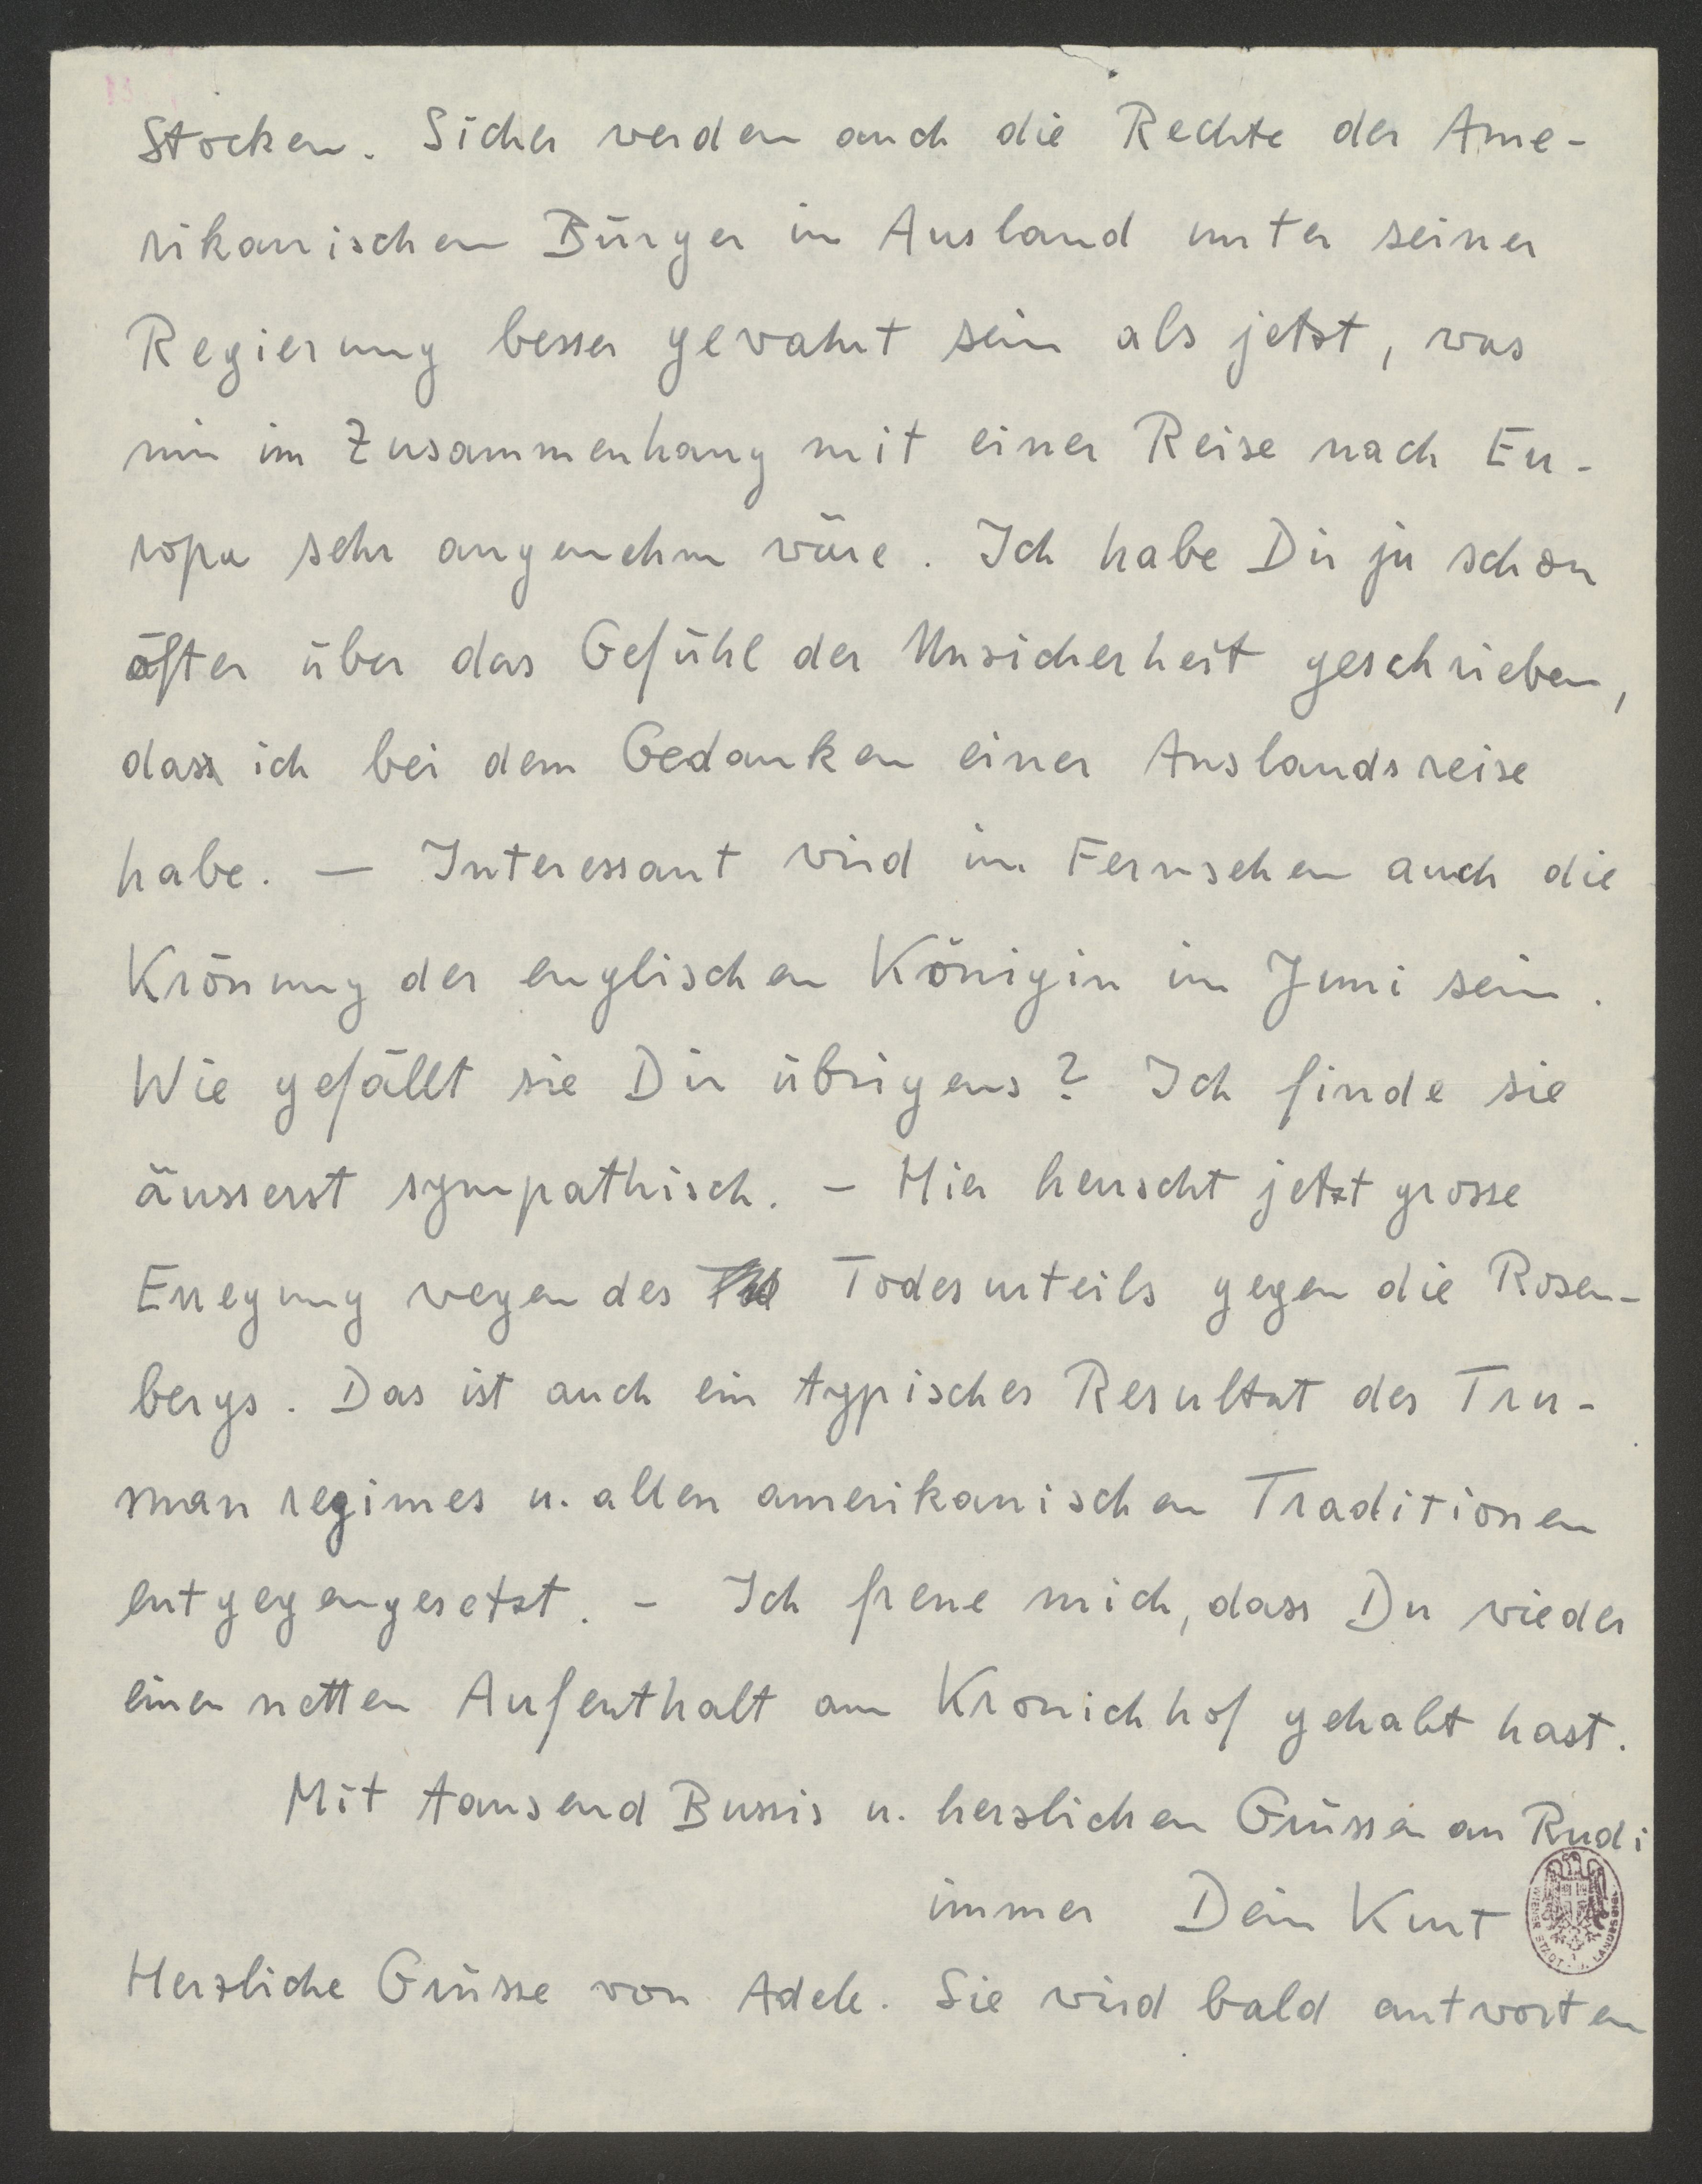 Stocken. Sicher werden auch die Rechte der Ame-
rikanischen Bürger im Ausland unter seiner
Regierung besser gewahrt sein als jetzt, was
mir im Zusammenhang mit einer Reise nach Eu-
ropa sehr angenehm wäre. Ich habe Dir ja schon
öfter über das Gefühl der Unsicherheit geschrieben,
dass ich bei dem Gedanken einer Auslandsreise
habe. — Interessant wird im Fernsehen auch die
Krönung der englischen Königin im Juni sein.
Wie gefällt sie Dir übrigens? Ich finde sie
äusserst sympathisch. – Hier herrscht jetzt grosse
Erregung wegen des Todesurteils gegen die Rosen-
bergs. Das ist auch ein typisches Resultat des Tru-
manregimes u. allen amerikanischen Traditionen
entgegengesetzt. – Ich freue mich, dass Du wieder
einen netten Aufenthalt am Kronichhof gehabt hast.
Mit tausend Bussis u. herzlichen Grüssen an Rudi
immer Dein Kurt
WIENER STADT- U. LANDESBIBL.
Herzliche Grüsse von Adele. Sie wird bald antworten